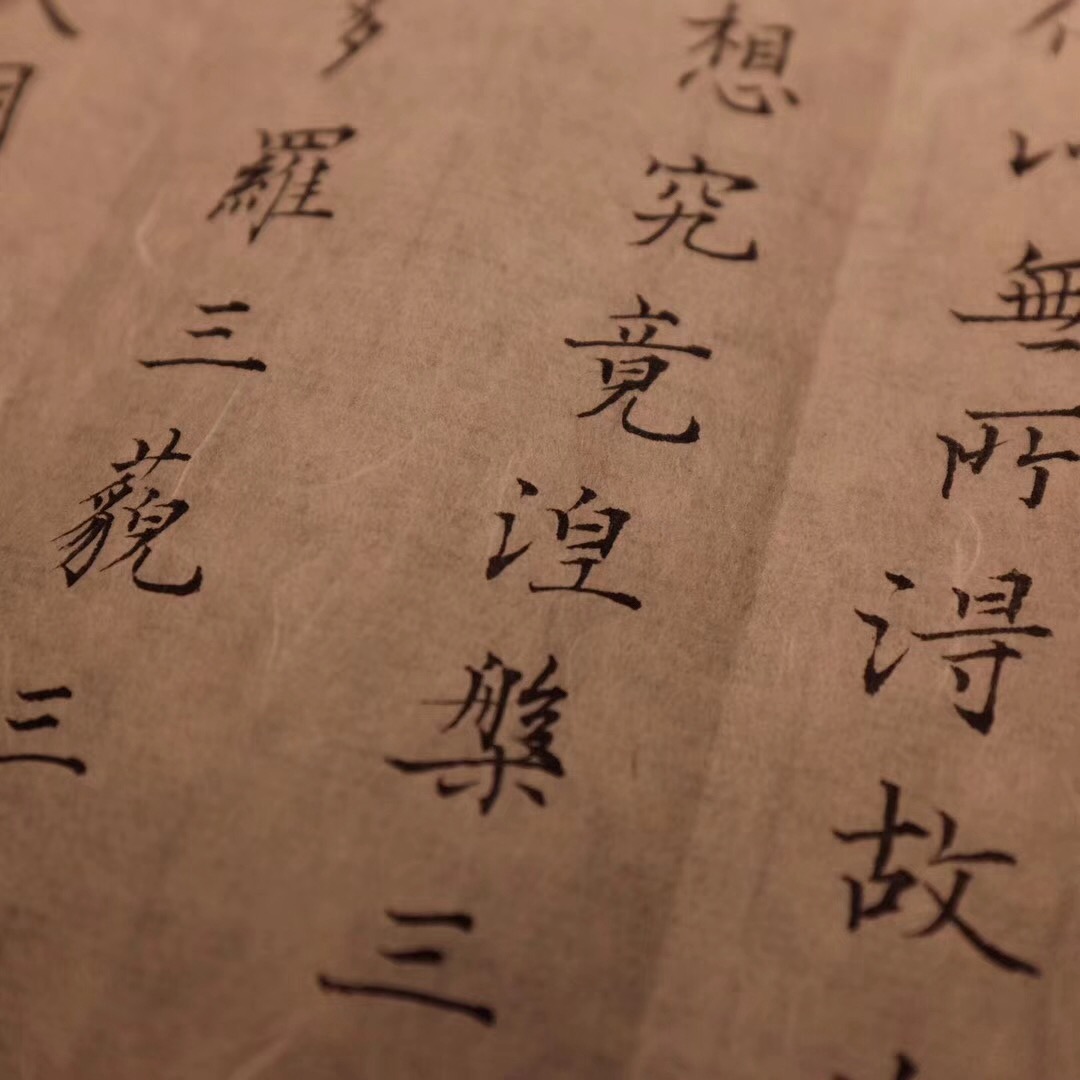 以無所得故
想究竟涅槃三
多羅三藐三